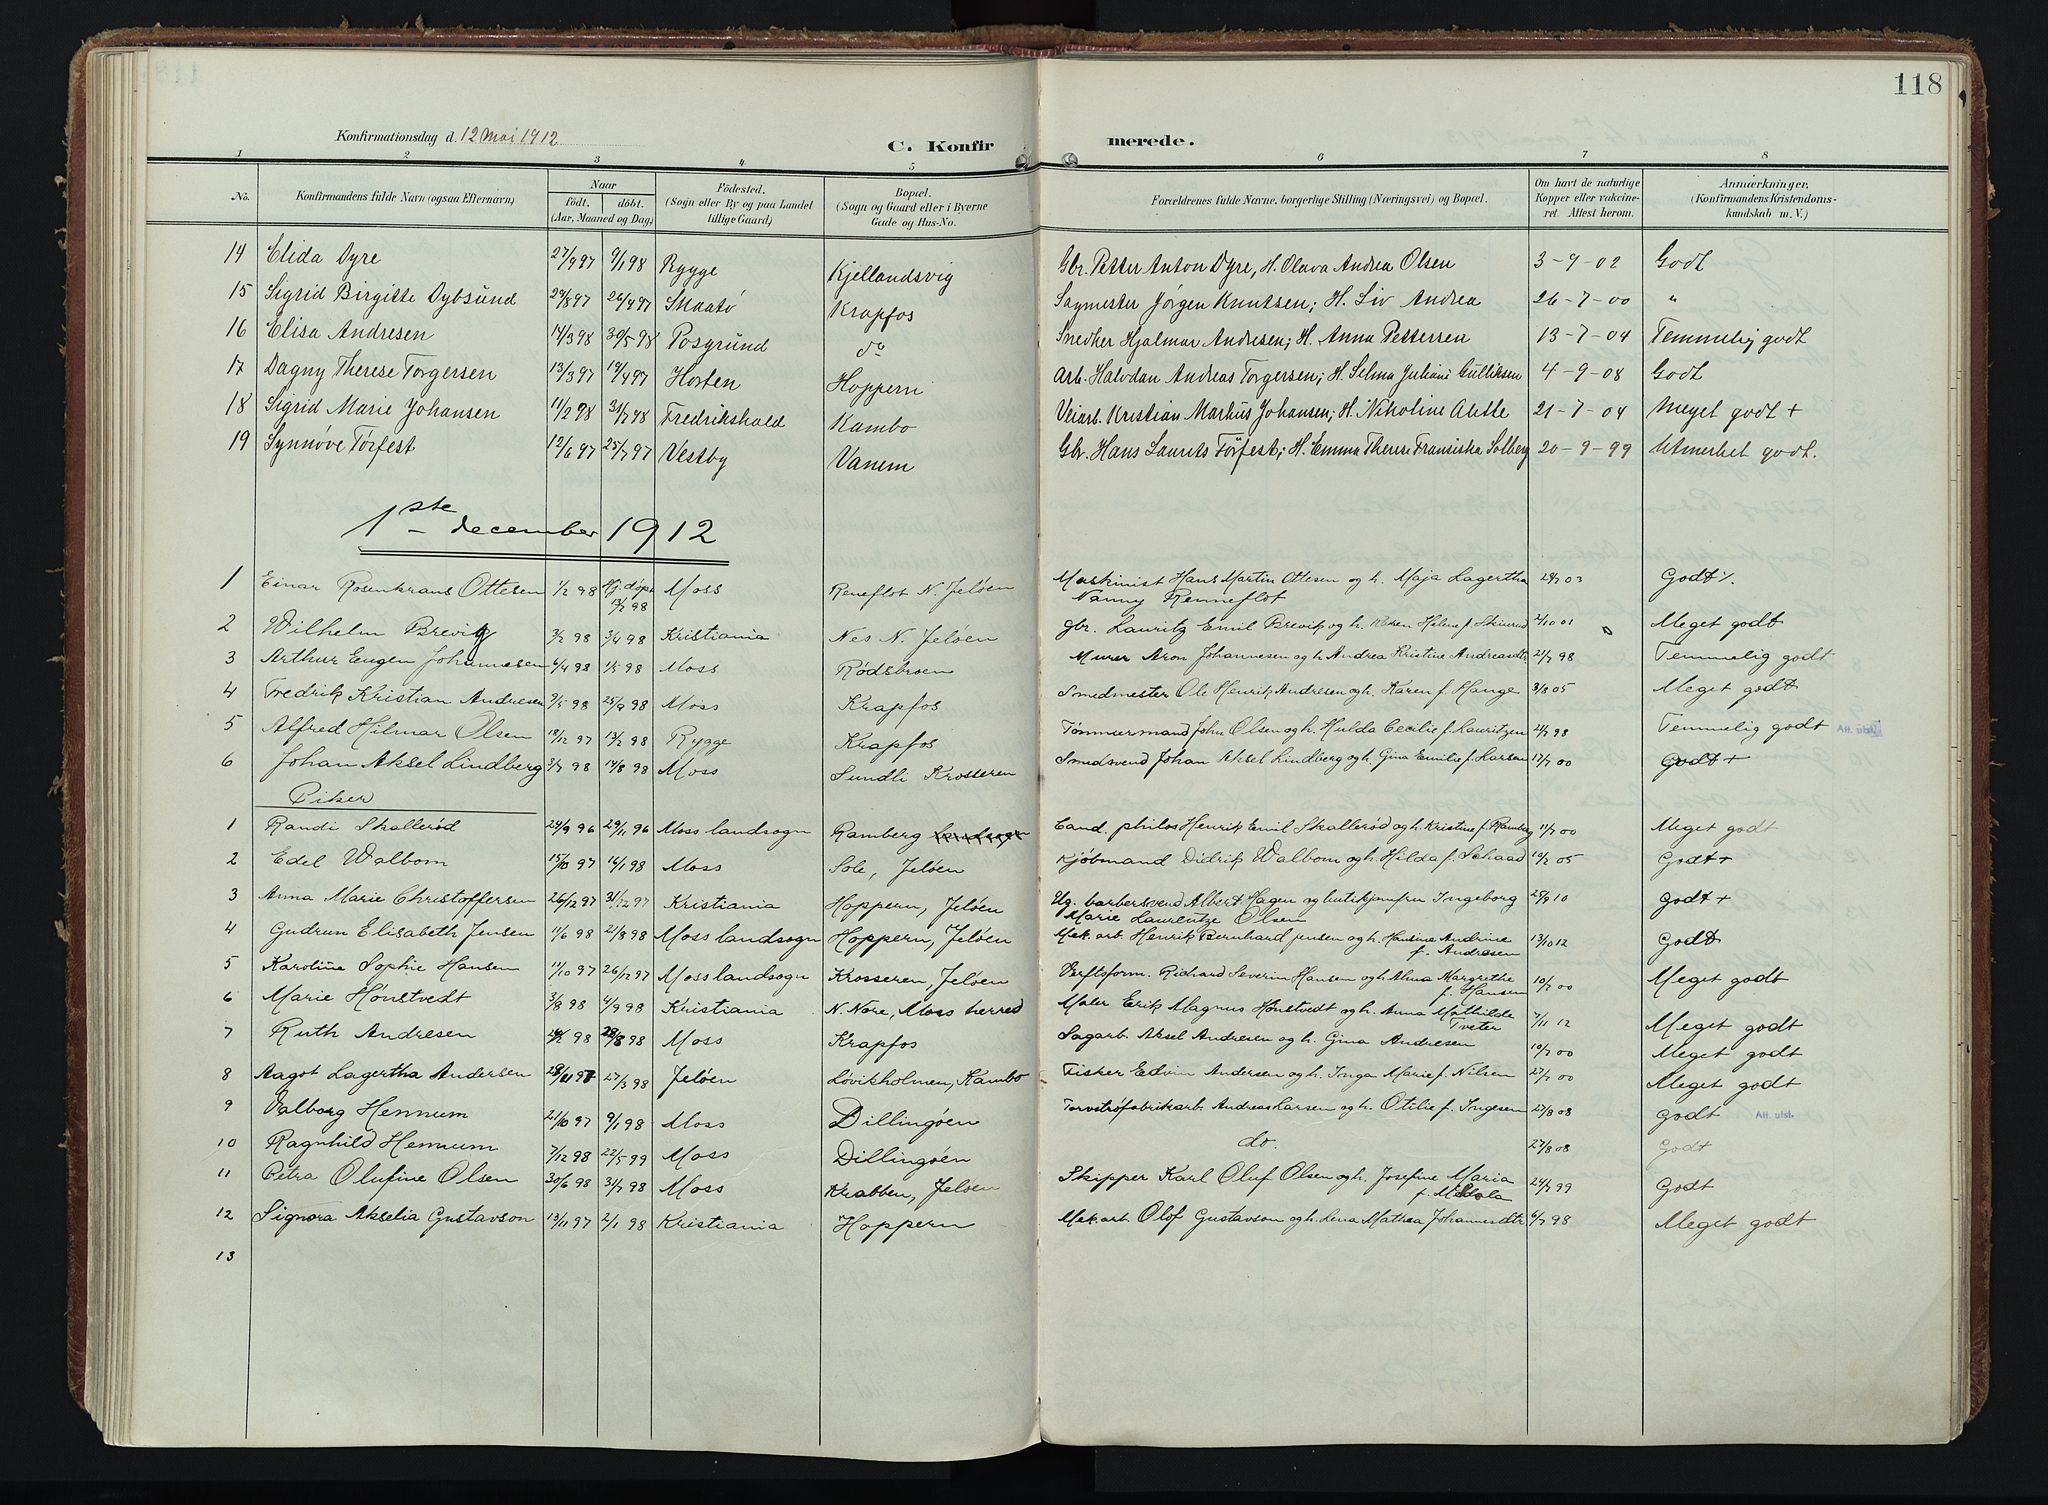 118
Konfirmationsdag d. 12 Mai 1912
C. Konfirmerede.
1 2 3 4 5 6 7 8
No. Konfirmandens fulde Navn (ogsaa Efternavn) Naar födt. döbt. (Aar, Maaned og Dag) Födested. (Sogn eller By og paa Landet tillige Gaard) Bopæl. (Sogn og Gaard eller i Byerne Gade og Hus-No. Forældrenes fulde Navne, borgerlige Stilling (Næringsvei) og Bopæl. Om havt de naturlige Kopper eller vakcineret Attest herom. Anmærkninger. (Konfirmandens Kristendomskundskab m. V.)
14 Elida Dyre 27/9 97 9/1 98 Rygge Kjellandsvig Gbr. Petter Anton Dyre, H. Olava Andrea Olsen 3-9-02 Godt
15 Sigrid Birgitte Dybsund 29/8 97 26/9 97 Skaatö Krapfos Sagmester Jörgen Knutsen; H. Liv Andrea 26-7-00 "
16 Elisa Andresen 14/3 98 30/5 98 Posgrund do Snedker Hjalmar Andresen; H. Anna Pettersen 13-7-04 Temmelig godt
17 Dagny Therese Torgersen 13/3 97 19/4 97 Horten Hoppern Arb. Halvdan Andreas Torgersen; H. Selma Juliane Gulliksen 4-9-08 Godt
18 Sigrid Marie Johansen 11/2 98 31/7 98 Fredrikshald Kambo Veiarb. Kristian Markus Johansen; H. Nikoline Alette 21-7-04 Meget godt +
19 Synnöve Törfest 12/6 97 25/7 97 Vestby Vanem Gbr. Hans Laurits Törfest; H. Emma Therese Fransiska Solberg 20-9-99 Utmerket godt.
1ste december 1912
1 Einar Rosenkrans Ottesen 1/2 98 Hj. döpt 13/2 98 Moss Reneflot N. Jeløen Maskinist Hans Martin Ottesen og h. Maja Lagertha Nanny Renneflot 29/7 03 Godt
2 Wilhelm Brevig 3/2 98 3/4 98 Kristiania Nes N. Jeløen gbr. Lauritz Emil Brevik og h. Helene f. 2/10 01 Meget godt
3 Arthur Eugen Johannesen 6/4 98 1/5 98 Moss Rødsbroen Murer Aron Johannesen og h. Andrea Kristine Andreasdtr. 21/7 98 Temmelig godt
4 Fredrik Kristian Andresen 9/5 98 25/9 98 Moss Krapfos Smedmester Ole Henrik Andresen og h. Karen f. Hauge 3/8 05 Meget godt
5 Alfred Hilmar Olsen 18/12 97 13/2 98 Rygge Krapfos Tömmermand John Olsen og h. Hulda Cecilie f. Lauritzen 21/7 98 Temmelig godt Att. utst.
6 Johan Aksel Lindberg 3/7 98 14/8 98 Moss Sundli Krosseren Smedsvend Johan Aksel Lindberg og h. Gina Emilie f. Larsen 17/7 00 Godt +
Piker
1 Randi Skallerød 24/9 96 29/11 96 Moss landsogn Ramberg Cand. philos Henrik Emil Skallerød og h. Kristine f. Ramberg 11/7 00 Meget godt
2 Edel Walbom 15/10 97 16/1 98 Moss Sole, Jeløen Kjöbmand Didrik Walbom og h. Hilda f. Schaad 10/2 05 Godt +
3 Anna Marie Christoffersen 26/12 97 31/12 97 Kristiania Hoppern, Jeløen Ug. barbersvend Albert Hagen og butikjomfru Ingeborg Marie Laurentze Olsen 25/9 10 Godt +
4 Gudrun Elisabeth Jensen 11/6 98 21/8 98 Moss landsogn Hoppern, Jeløen Mek. arb. Henrik Bernhard Jensen og h. Hansine Andrine f. Andresen 13/10 12 Godt
5 Karoline Sophie Hansen 11/10 97 26/12 97 Moss landsogn Krosseren, Jeløen Verftsform. Richard Severin Hansen og h. Alma Margrethe f. Hansen 10/7 00 Meget godt
6 Marie Hønstvedt 3/8 98 4/9 98 Kristiania N. Nore, Moss herred Maler Erik Magnus Hønstvedt og h. Anna Mathilde Tveter 7/11 12 Meget godt
7 Ruth Andresen 28/8 98 Moss Krapfos Sagarb. Aksel Andresen og h. Gina Andresen 10/7 00 Meget godt
8 Aagot Lagertha Andersen 28/11 97 27/3 98 Jeløen Løvikholmen, Kambo Fisker Edvin Andersen og h. Inga Marie f. Nilsen 27/7 00 Meget godt
9 Valborg Hennum 21/10 97 9/1 98 Moss Dillingøen Torvströfabrikarb. Andreas Larsen og h. Otilie f. Ingesen 27/8 08 Godt Att. utst.
10 Ragnhild Hennum 7/12 98 22/5 99 Moss Dillingøen do. 27/8 08 Godt
11 Petra Olufine Olsen 30/6 98 31/7 98 Moss Krabben, Jeløen Skipper Karl Oluf Olsen og h. Josefine Maria f. 24/7 99 Godt
12 Signora Akselia Gustavson 13/11 97 2/1 98 Kristiania Hoppern Mek arb. Olof Gustavson og h. Lena Mathea Johannesdtr. 6/7 98 Meget godt
13